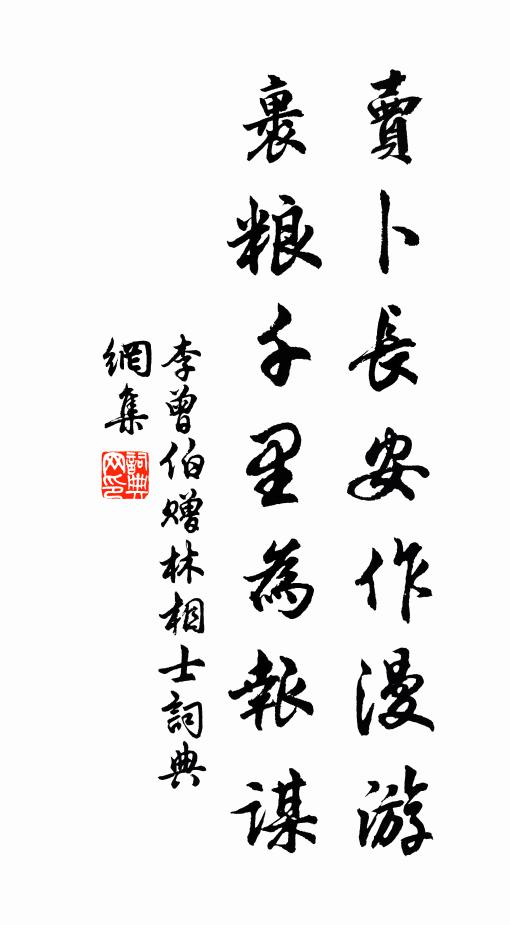 賣卜長安作漫游
裹粮千里為報謀
李曾伯贈林相士詞典
網集
詞典網印